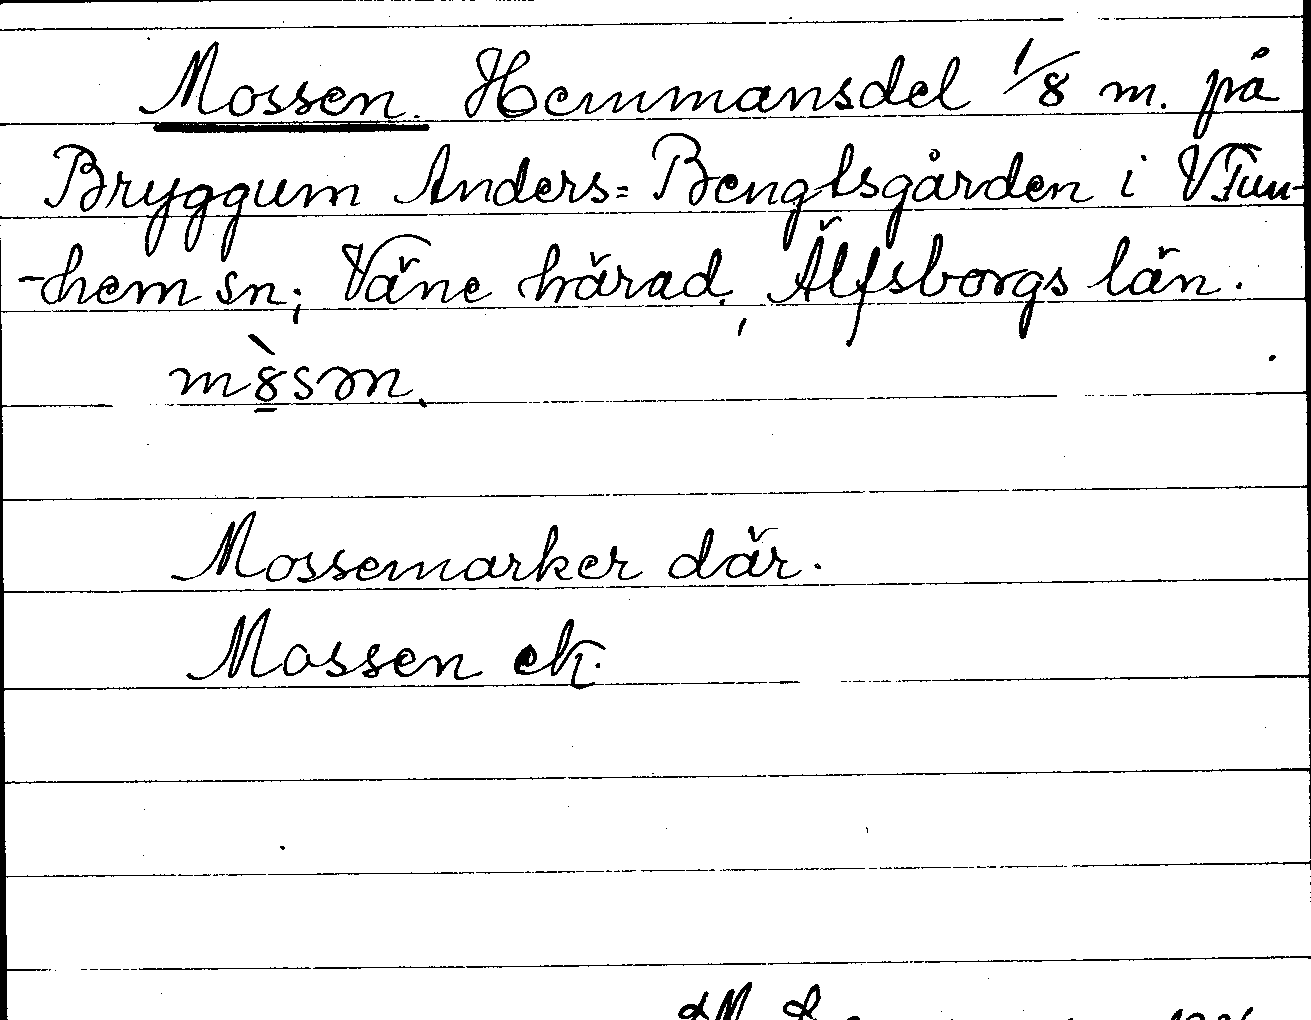 Mossen. Hemmansdel 1/8 m. på
Bryggum Anders=Bengtsgården i V Tun-
-hem sn; Väne härad, Älfsborgs län.
mò̱sən.
Mossemarker där.
Mossen ek.